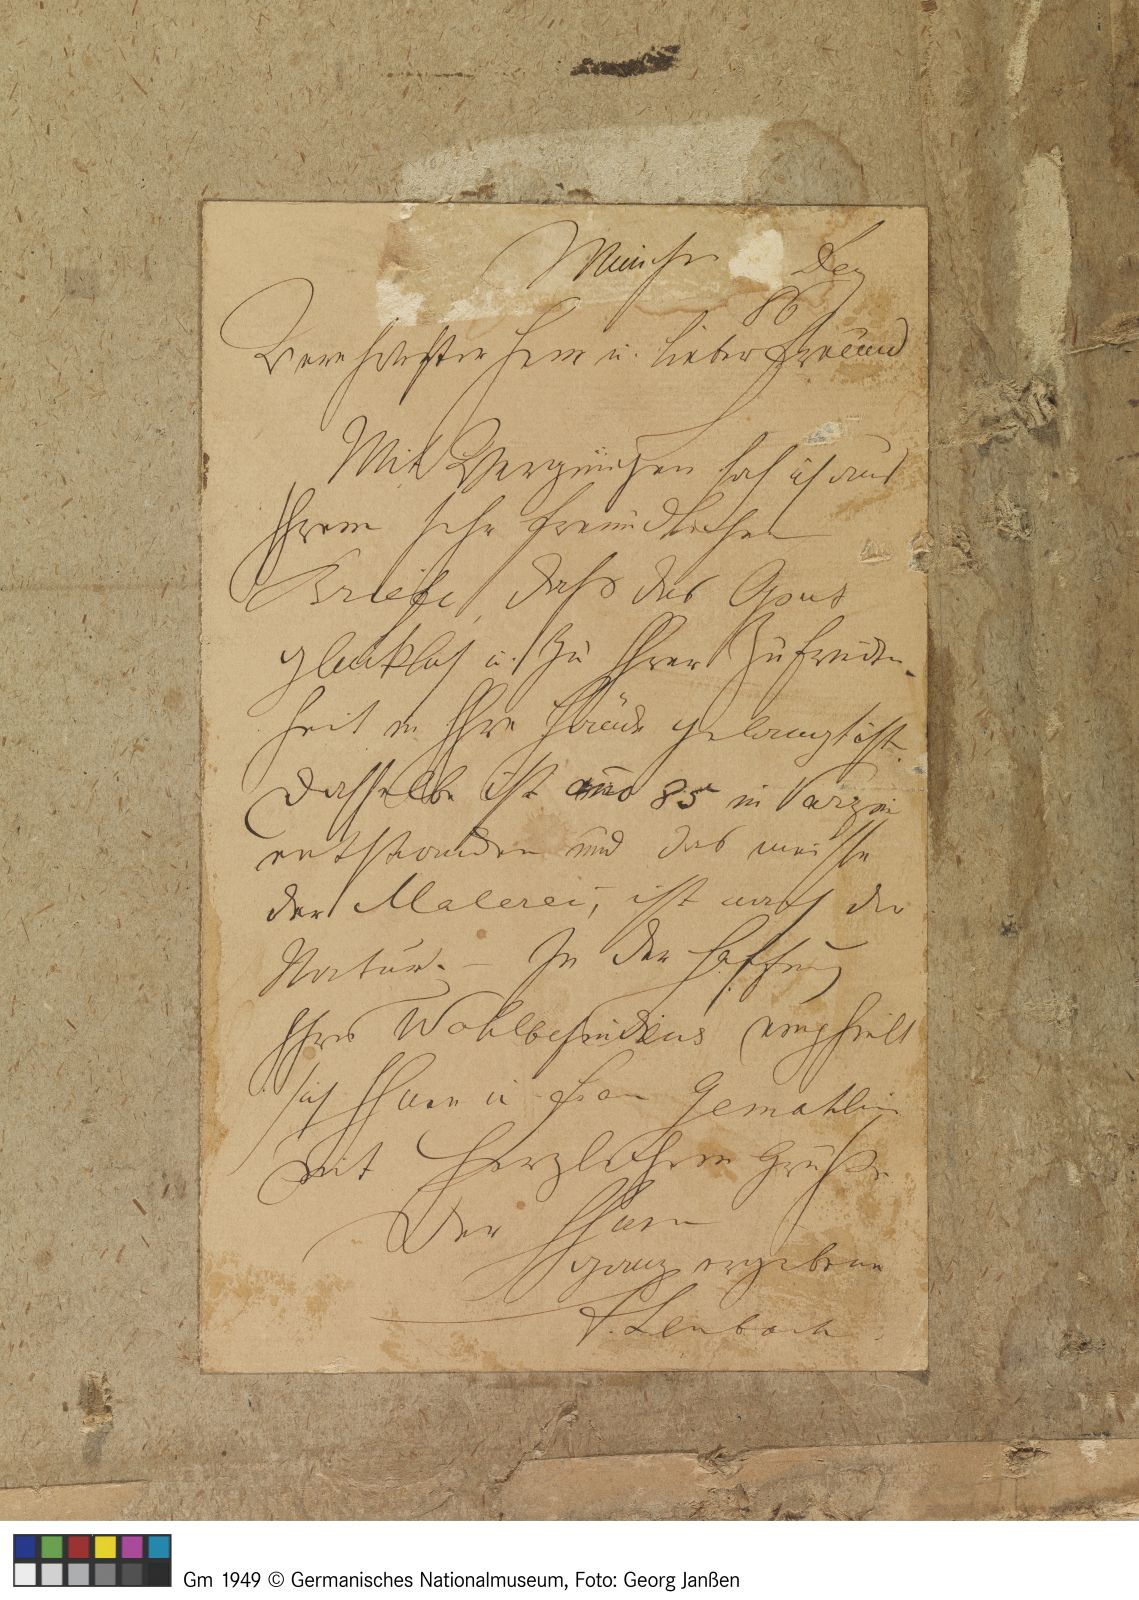 München Dez
86
Verehrtester Herr u. lieber Freund
Mit Vergnügen sah ich aus
Ihrem sehr freundlichen
Briefe, daß das Opus
glücklich u. zu Ihrer Zufrieden-
heit in Ihre Hände gelangt ist.
Dasselbe ist anno 85 in Varzin
entstanden und das meiste
der Malerei, ist nach der
Natur. – In der Hoffnung
Ihres Wohlbefindens empfielt
sich Ihnen u. Frau Gemahlin
mit herzlichem Gruße
Der Ihnen
ganz ergebene
F. Lenbach.
Gm 1949 © Germanisches Nationalmuseum, Foto: Georg Janßen